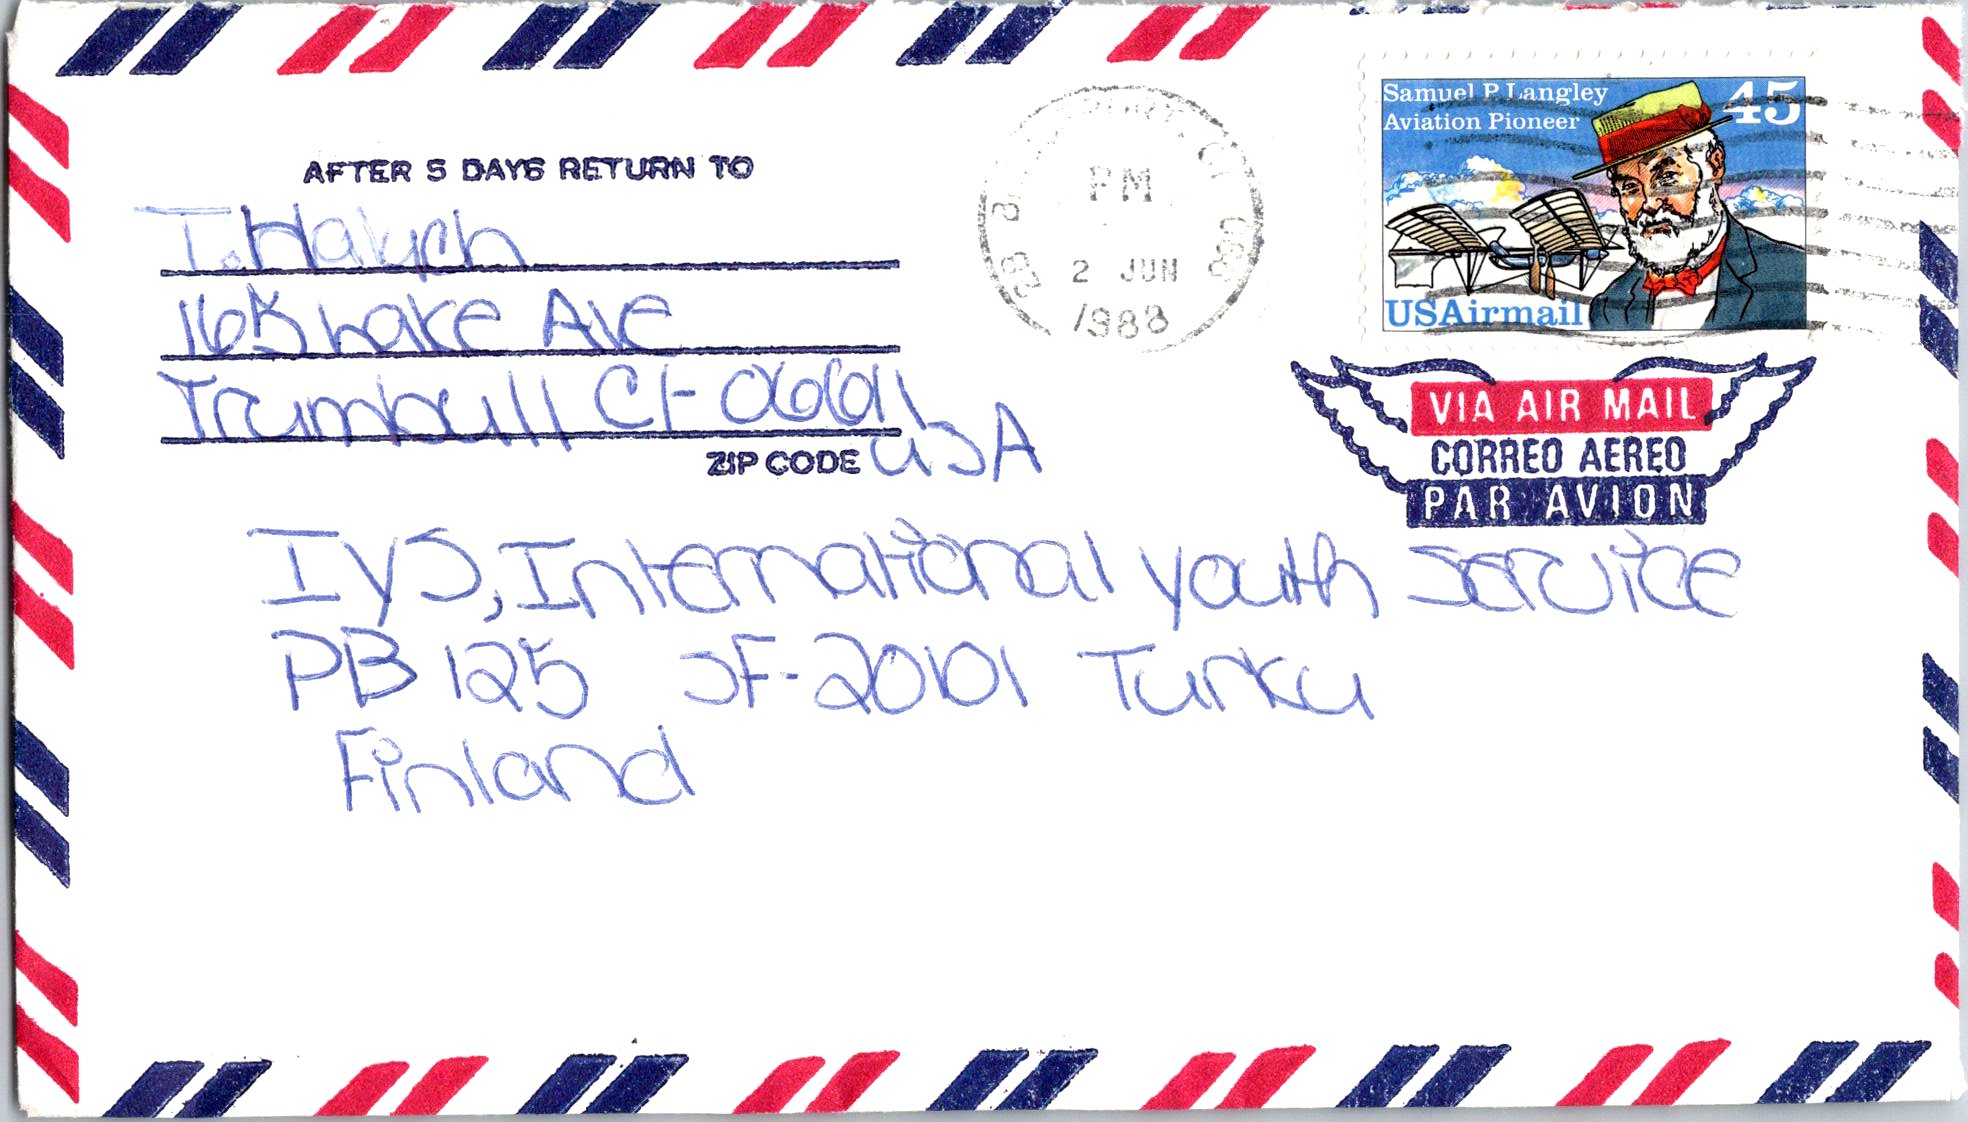 AFTER 5 DAYS RETURN TO
T. Halych
165 Lake Ave
Trumbull Ct 06611
ZIP CODE USA
PM
2 JUN
1988
Samuel P. Langley
Aviation Pioneer
45
USAirmail
VIA AIR MAIL
CORREO AEREO
PAR AVION
IYS, International Youth Service
PB 125 SF-20101 Turku
Finland